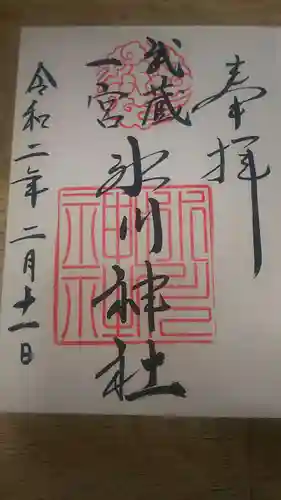 奉拝
武蔵
一宮
氷川神社
令和二年二月十一日